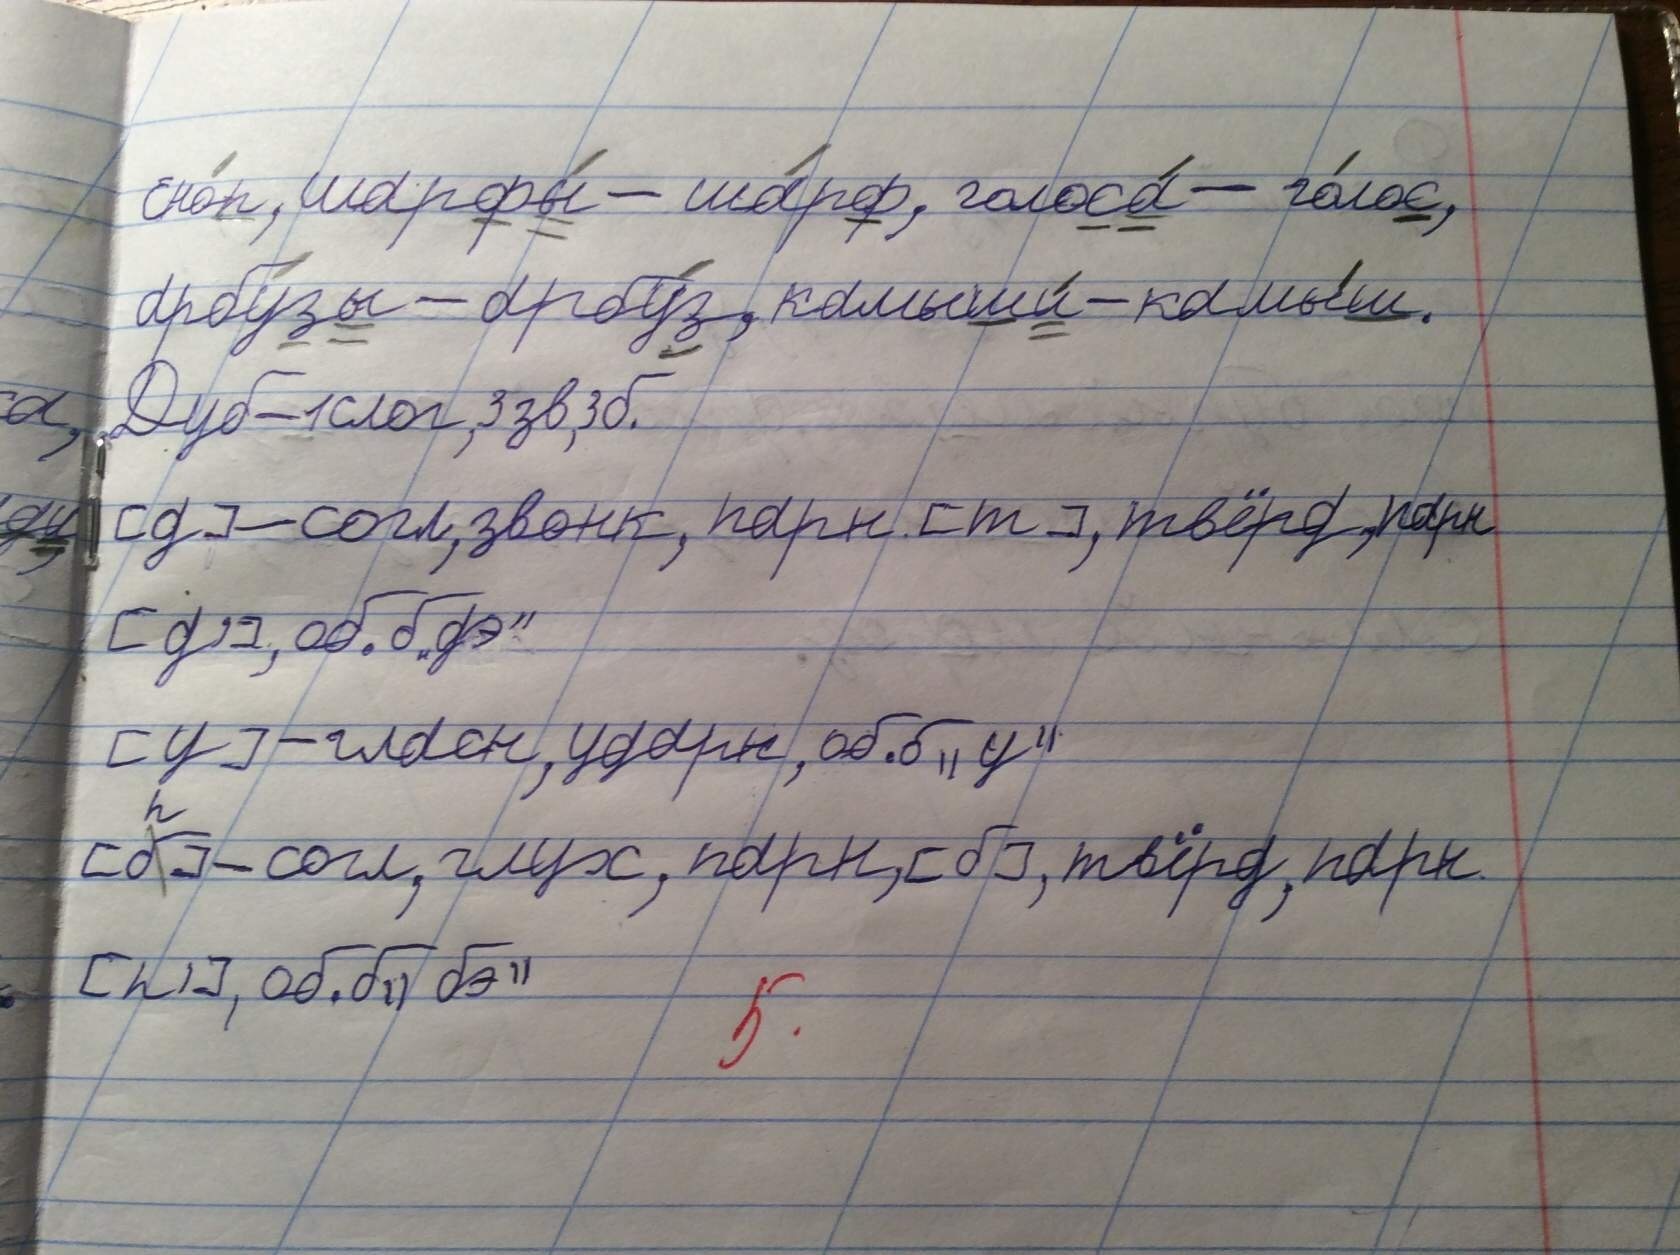 сноп, шарфы́ – ша́рф, голоса́ – го́лос,
арбу́зы – арбу́з, камыши́ – камы́ш.
са, Дуб – 1 слог, 3 зв, 3 б.
ду [д] – согл, звонк, парн. [т], твёрд, парн
[д'], об. б. „дэ"
[у] – гласн, ударн, об. б „у"
п
[б] – согл, глух, парн, [б], твёрд, парн.
[п'], об. б „бэ"
5.